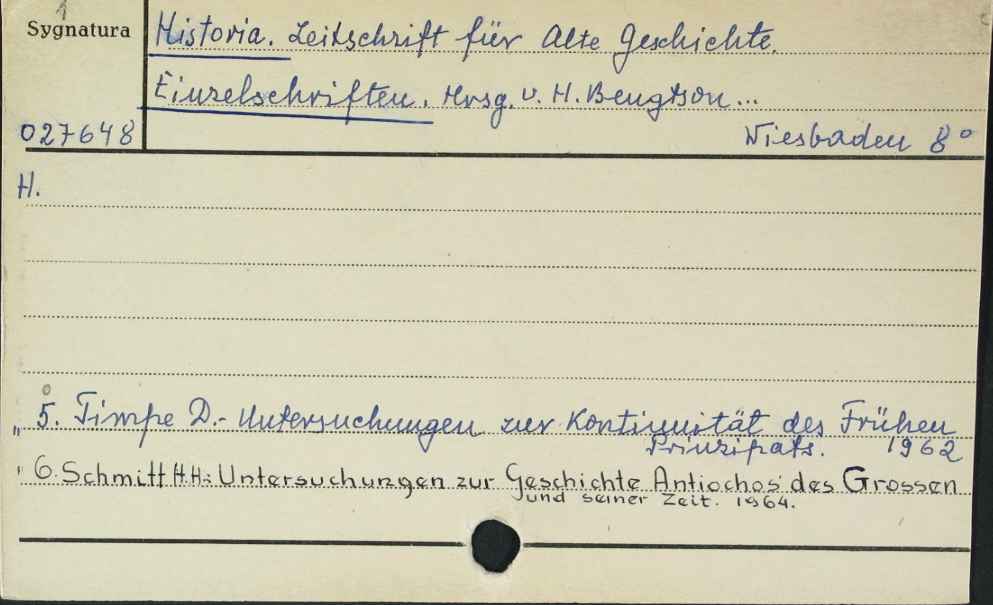 1
Sygnatura
Historia. Zeitschrift für Alte Geschichte.
Einzelschriften. Hrsg. v. H. Bengtson...
027648
Wiesbaden 8°
H.
„ 5. Timpe D.- Untersuchungen zur Kontinuität des Frühen
Prinzipats. 1962
" 6. Schmitt H.H.: Untersuchungen zur Geschichte Antiochos' des Grossen
und seiner Zeit. 1964.